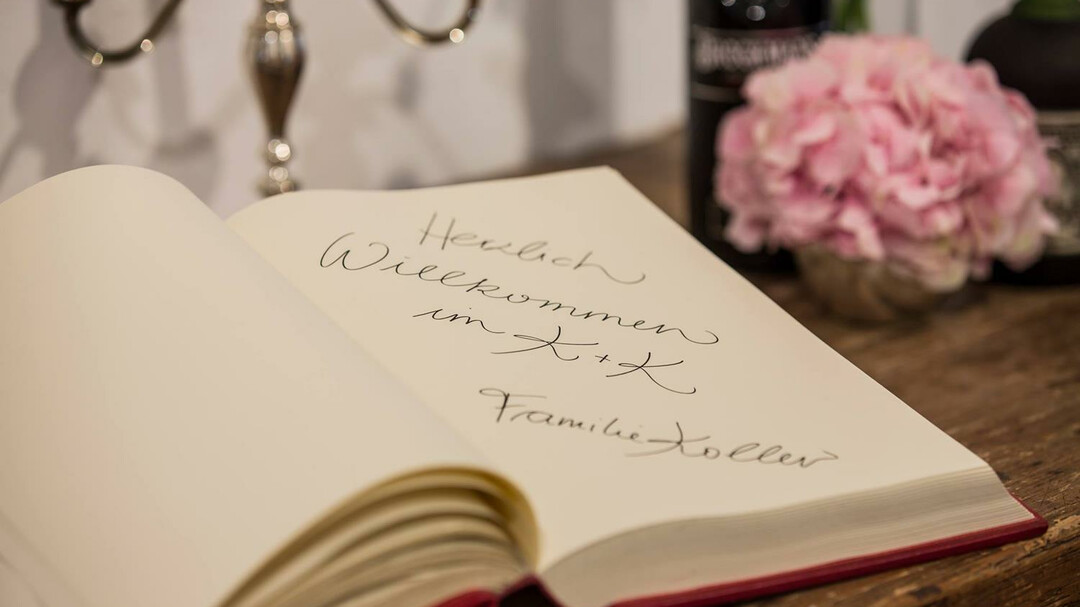 Herzlich
Willkommen
im K+K
Familie Koller